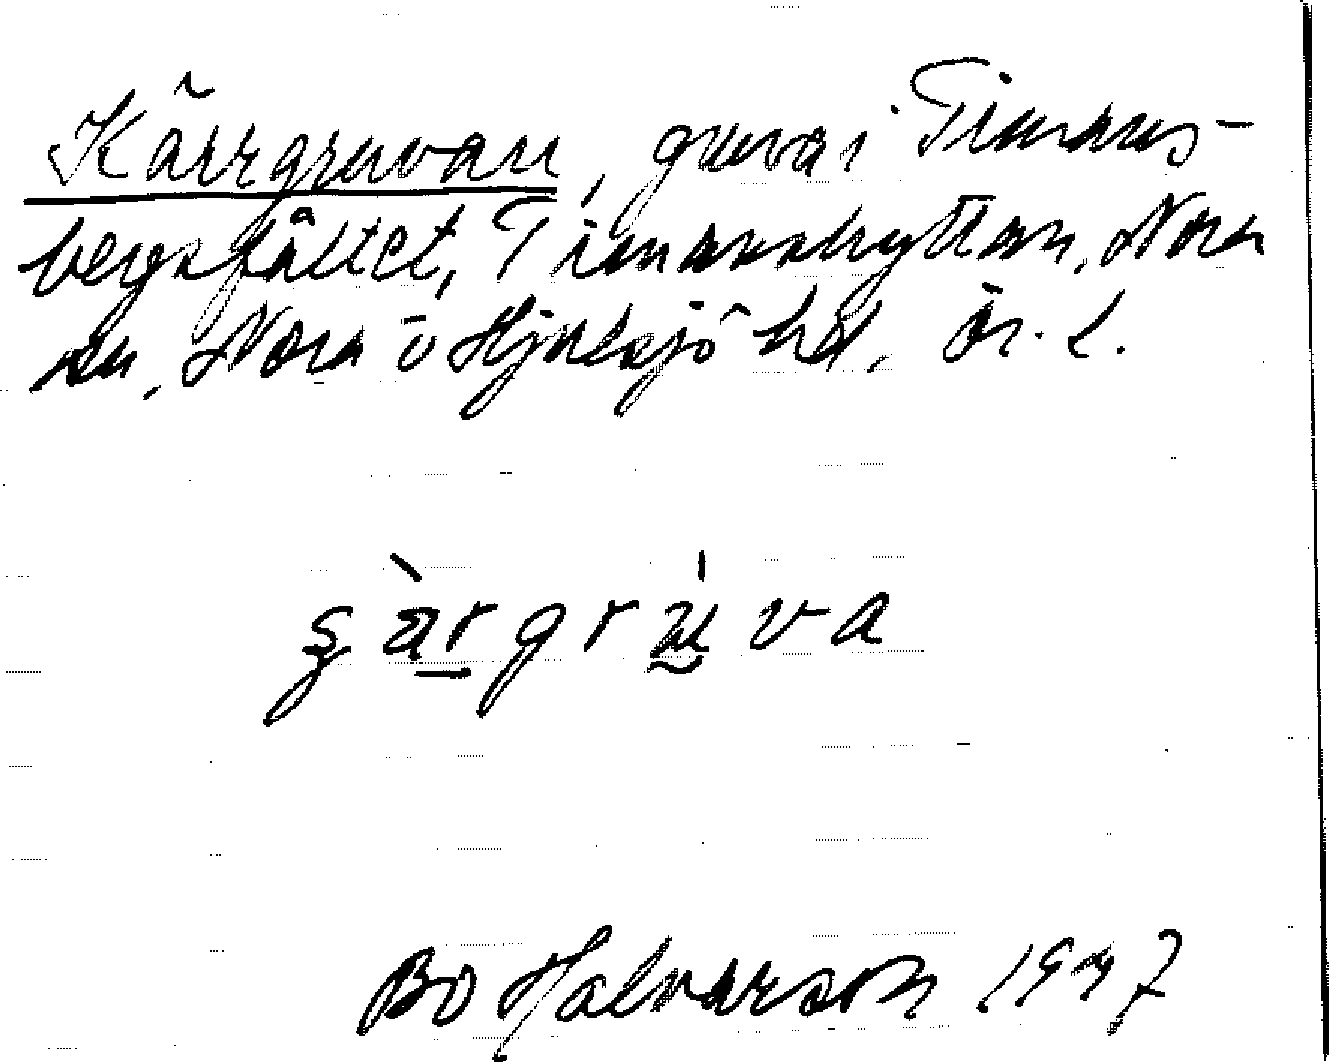 Kärrgruvan, gruva i Timans-
bergsfältet, Timanshyttan, Nora
sn, Nora o Hjulsjö hd, Ör. l.
Bo Halvarson 1947